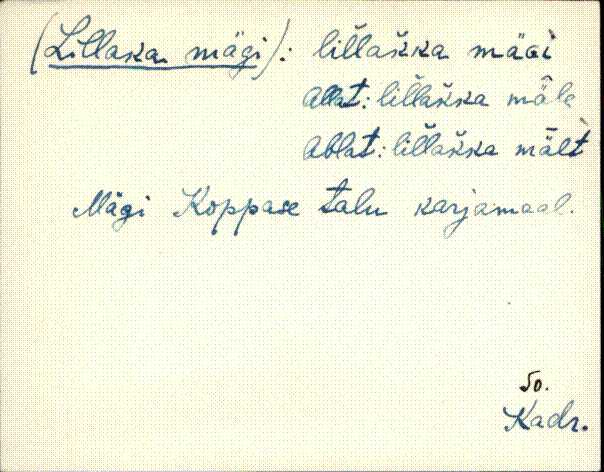 (Lillaka mägi): lil̆lak̆ka mäGi
allat: lil̆lak̆ka mäle
ablat: lil̆lak̆ka mält
Mägi Koppase talu karjamaal.
50.
Kadr.